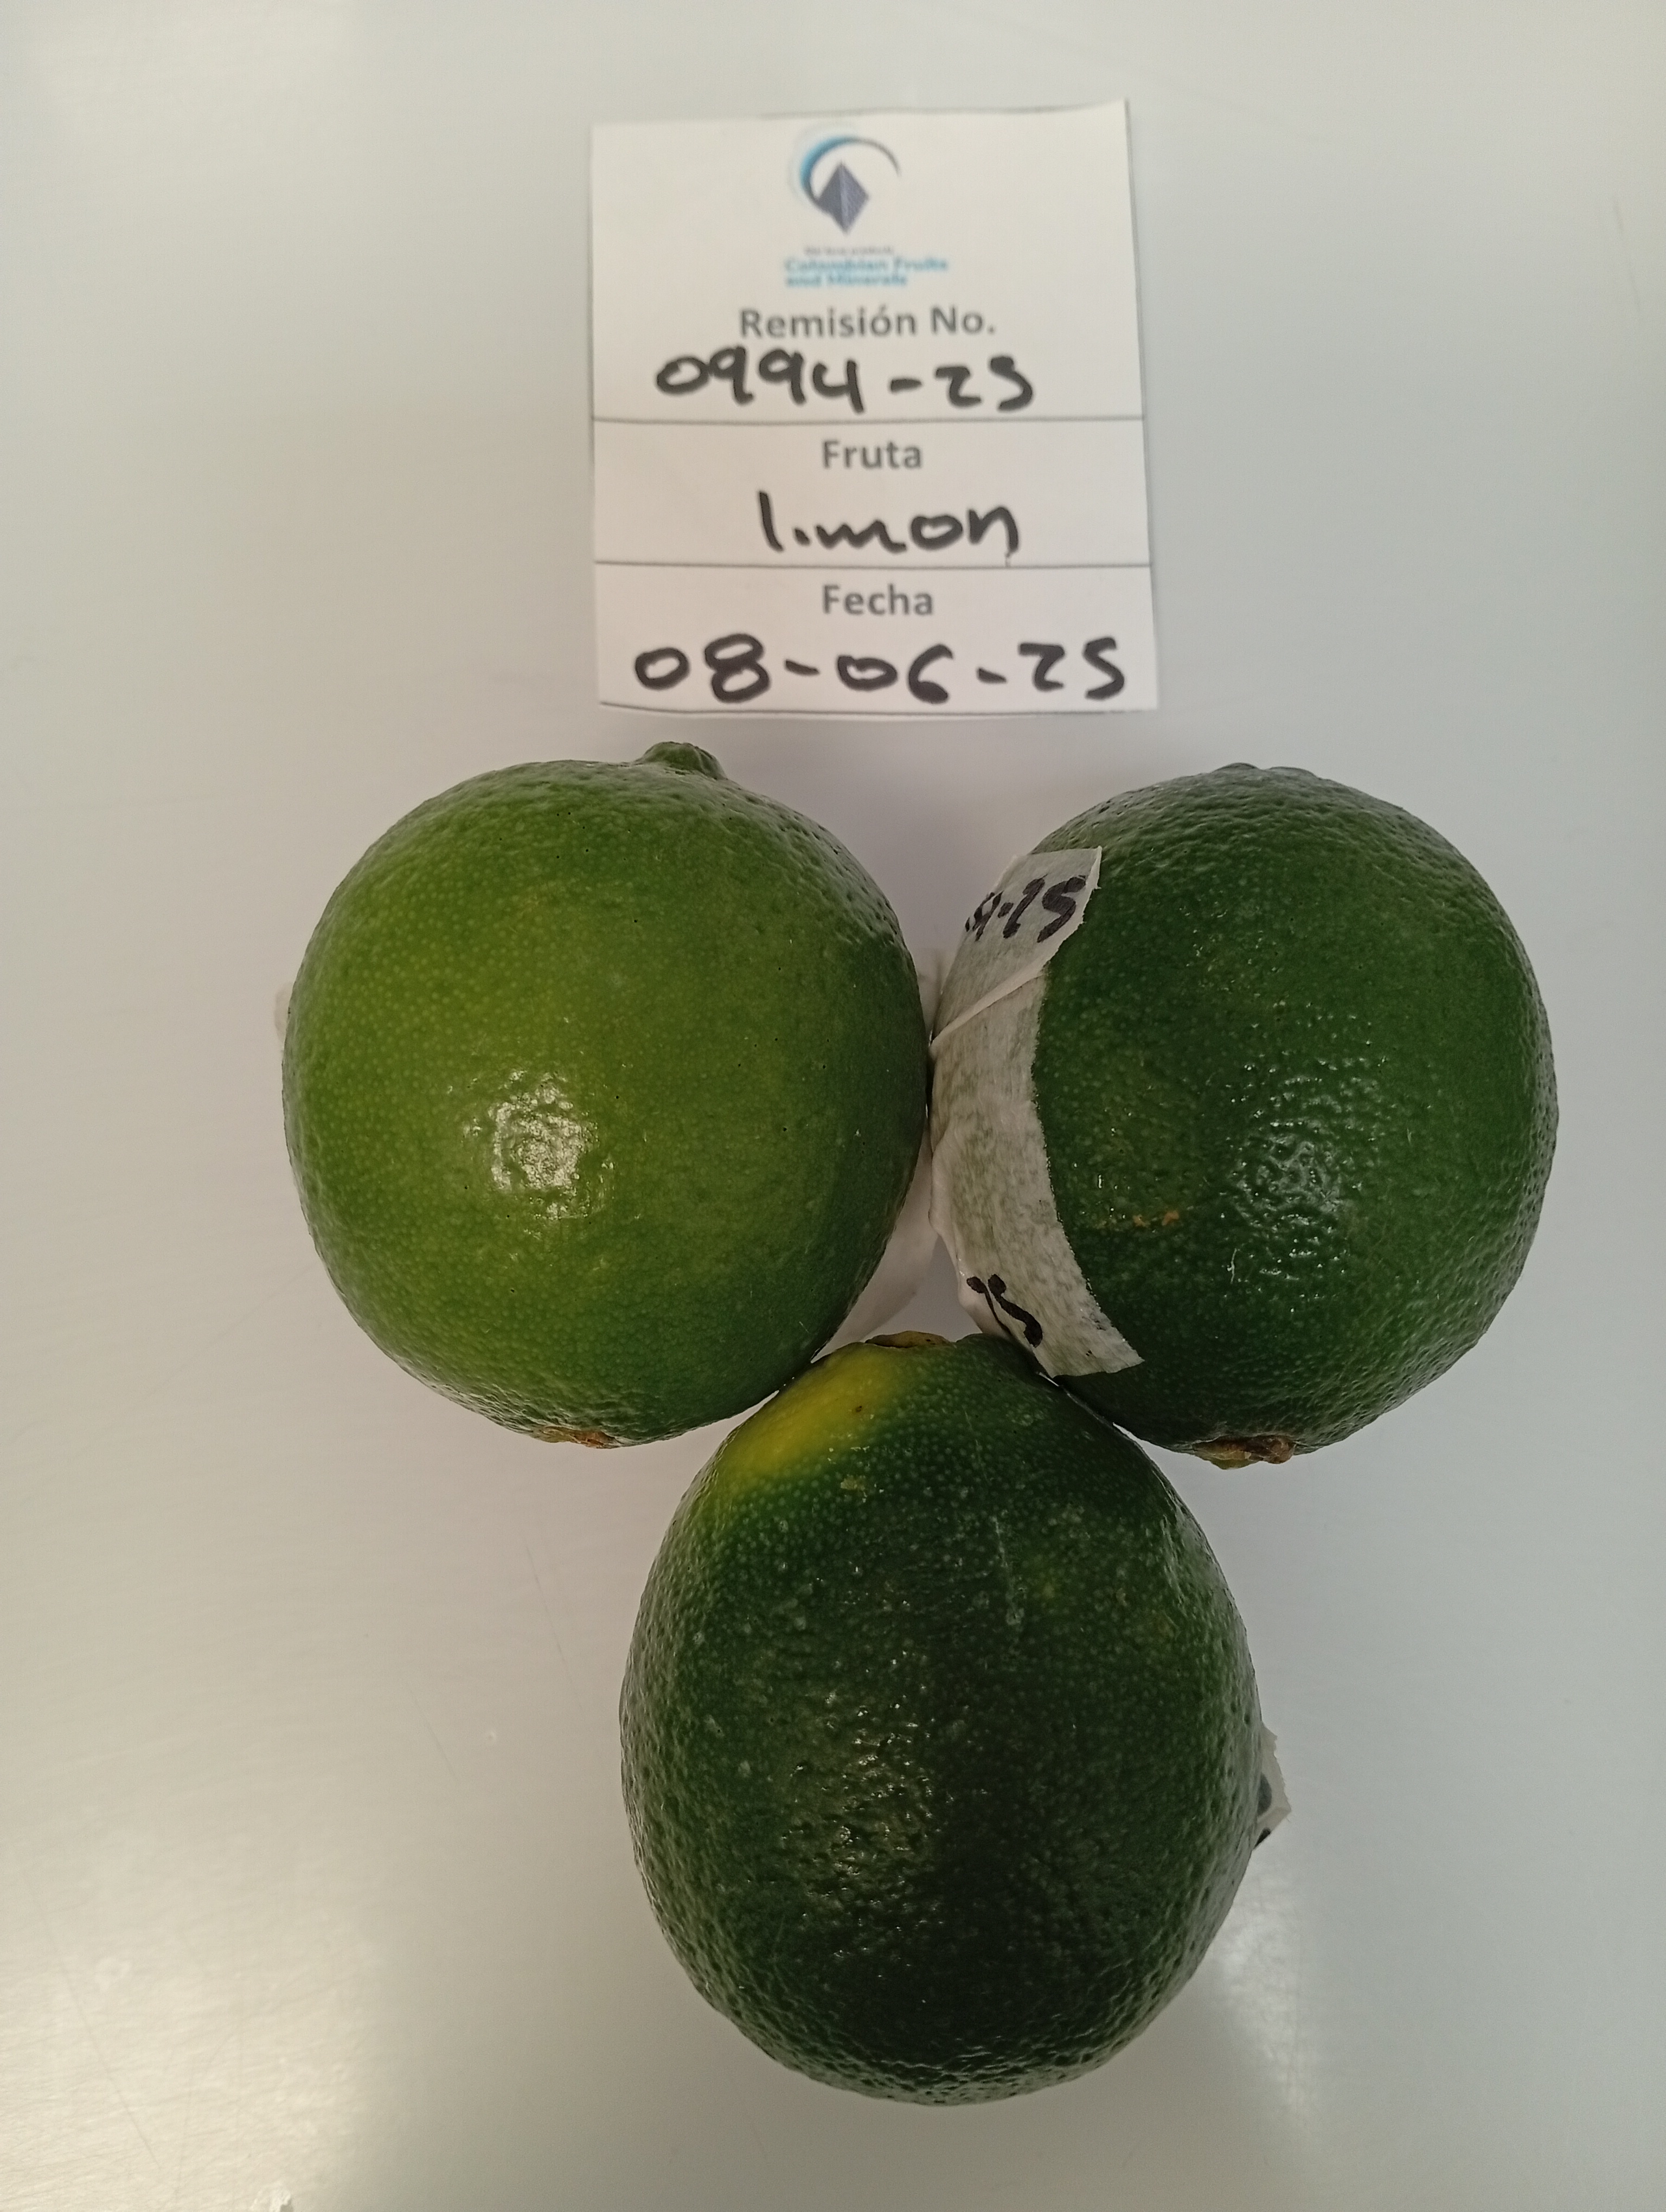 Colombian Fruits
and Minerals
Remisión No.
0994-25
Fruta
limon
Fecha
08-06-25
4-25